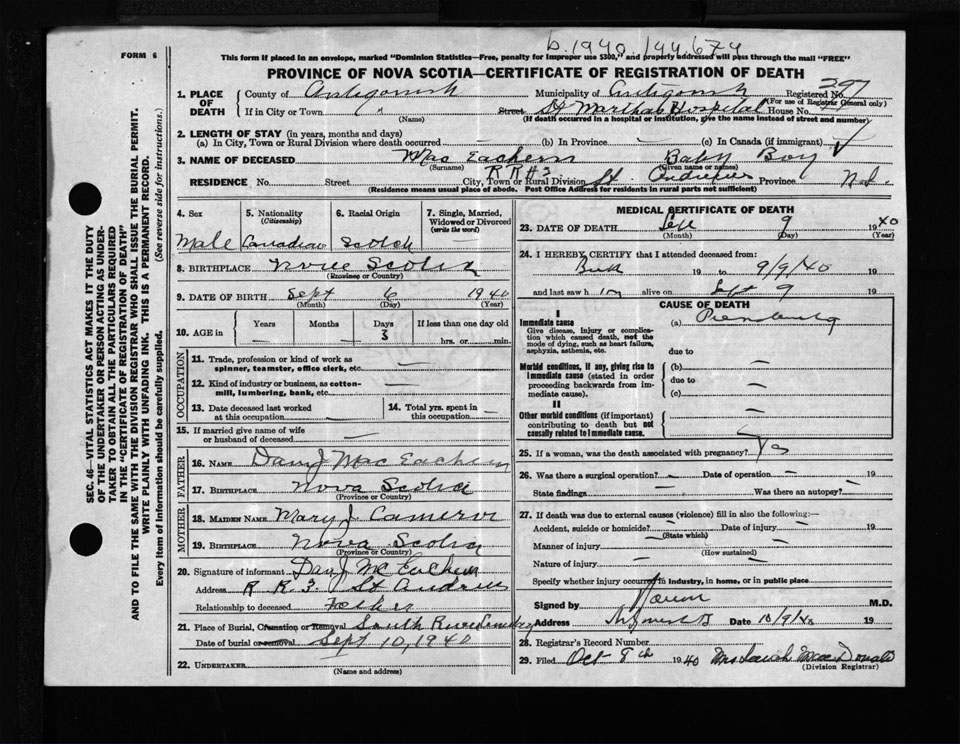 FORM 6
b. 1940. 144.674
This form if placed in an envelope, marked "Dominion Statistics—Free, penalty for improper use $300," and properly addressed will pass through the mail "FREE"
PROVINCE OF NOVA SCOTIA—CERTIFICATE OF REGISTRATION OF DEATH
1. PLACE OF DEATH County of Antigonish Municipality of Antigonish Registered No.
(For use of Registrar General only)
If in City or Town " Street St Marthas Hospital House No.
(Name) (If death occurred in a hospital or institution, give the name instead of street and number)
2. LENGTH OF STAY (in years, months and days)
(a) In City, Town or Rural Division where death occurred — (b) In Province — (c) In Canada (if immigrant) —
3. NAME OF DECEASED MacEachern Baby Boy
(Surname) (Given name or names)
RESIDENCE No. Street R R #3 City, Town or Rural Division St. Andrews Province N.S.
(Residence means usual place of abode. Post Office Address for residents in rural parts not sufficient)
SEC. 46—VITAL STATISTICS ACT MAKES IT THE DUTY
OF THE UNDERTAKER OR PERSON ACTING AS UNDER-
TAKER TO OBTAIN ALL THE PARTICULARS REQUIRED
IN THE "CERTIFICATE OF REGISTRATION OF DEATH"
AND TO FILE THE SAME WITH THE DIVISION REGISTRAR WHO SHALL ISSUE THE BURIAL PERMIT.
WRITE PLAINLY WITH UNFADING INK. THIS IS A PERMANENT RECORD.
Every item of information should be carefully supplied. (See reverse side for instructions.)
4. Sex 5. Nationality (Citizenship) 6. Racial Origin 7. Single, Married, Widowed or Divorced (write the word)
Male Canadian Scotch —
8. BIRTHPLACE Nova Scotia
(Province or Country)
9. DATE OF BIRTH Sept 6 1940
(Month) (Day) (Year)
10. AGE in Years Months Days If less than one day old
— — 3 hrs. or min.
OCCUPATION
11. Trade, profession or kind of work as spinner, teamster, office clerk, etc. —
12. Kind of industry or business, as cotton-mill, lumbering, bank, etc. —
13. Date deceased last worked at this occupation — 14. Total yrs. spent in this occupation —
15. If married give name of wife or husband of deceased —
FATHER
16. NAME Dan J Mac Eachern
17. BIRTHPLACE Nova Scotia
(Province or Country)
MOTHER
18. MAIDEN NAME Mary J. Cameron
19. BIRTHPLACE Nova Scotia
(Province or Country)
20. Signature of informant Dan J McEachern
Address R R 3. St Andrews
Relationship to deceased Father
21. Place of Burial, Cremation or Removal South River Cemetery
Date of burial or removal Sept 10, 1940
22. UNDERTAKER
(Name and address)
MEDICAL CERTIFICATE OF DEATH
23. DATE OF DEATH 9 1940
(Month) (Day) (Year)
24. I HEREBY CERTIFY that I attended deceased from:
Birth 19 to 9/9/40 19
and last saw h im alive on Sept 9 19
CAUSE OF DEATH
I
Immediate cause (a) Prematurity
Give disease, injury or complication which caused death, not the mode of dying, such as heart failure, asphyxia, asthenia, etc.
due to
Morbid conditions, if any, giving rise to immediate cause (stated in order proceeding backwards from immediate cause). (b) —
due to —
(c) —
II
Other morbid conditions (if important) contributing to death but not causally related to immediate cause.
25. If a woman, was the death associated with pregnancy?
26. Was there a surgical operation? — Date of operation — 19
State findings Was there an autopsy?
27. If death was due to external causes (violence) fill in also the following:—
Accident, suicide or homicide? — Date of injury — 19
(State which)
Manner of injury —
(How sustained)
Nature of injury —
Specify whether injury occurred in industry, in home, or in public place
Signed by M.D.
Address Date 10/9/40 19
28. Registrar's Record Number
29. Filed Oct 8th 1940 Mrs Sarah MacDonald
(Division Registrar)